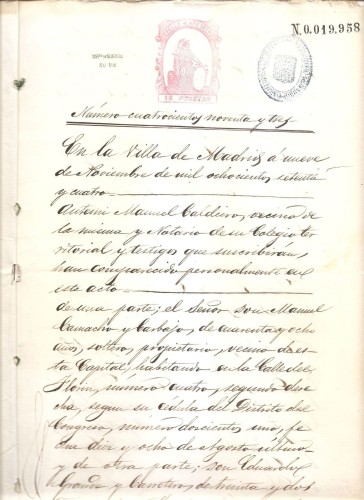 N.0.019,958
Número cuatrocientos noventa y tres
En la Villa de Madrid á nueve
de Noviembre de mil ochocientos setenta
y cuatro
Antemi Manuel Caldeiro, vecino de
la misma y Notario de su Colegio ter
ritorial y testigos que suscribirán,
han comparecido personalmente en
este acto
de una parte; el Señor Don Manuel
Camacho y Carbajo, de cuarenta y ocho
años, soltero, propietario, vecino de es
ta Capital, habitando en la Calle del
Florin, número cuatro, segundo dere
cha, segun su cédula del Distrito del
Congreso, número doscientos uno, fe
cha diez y ocho de Agosto último
y de otra parte; Don Eduardo
y Carreteros de treinta y dos